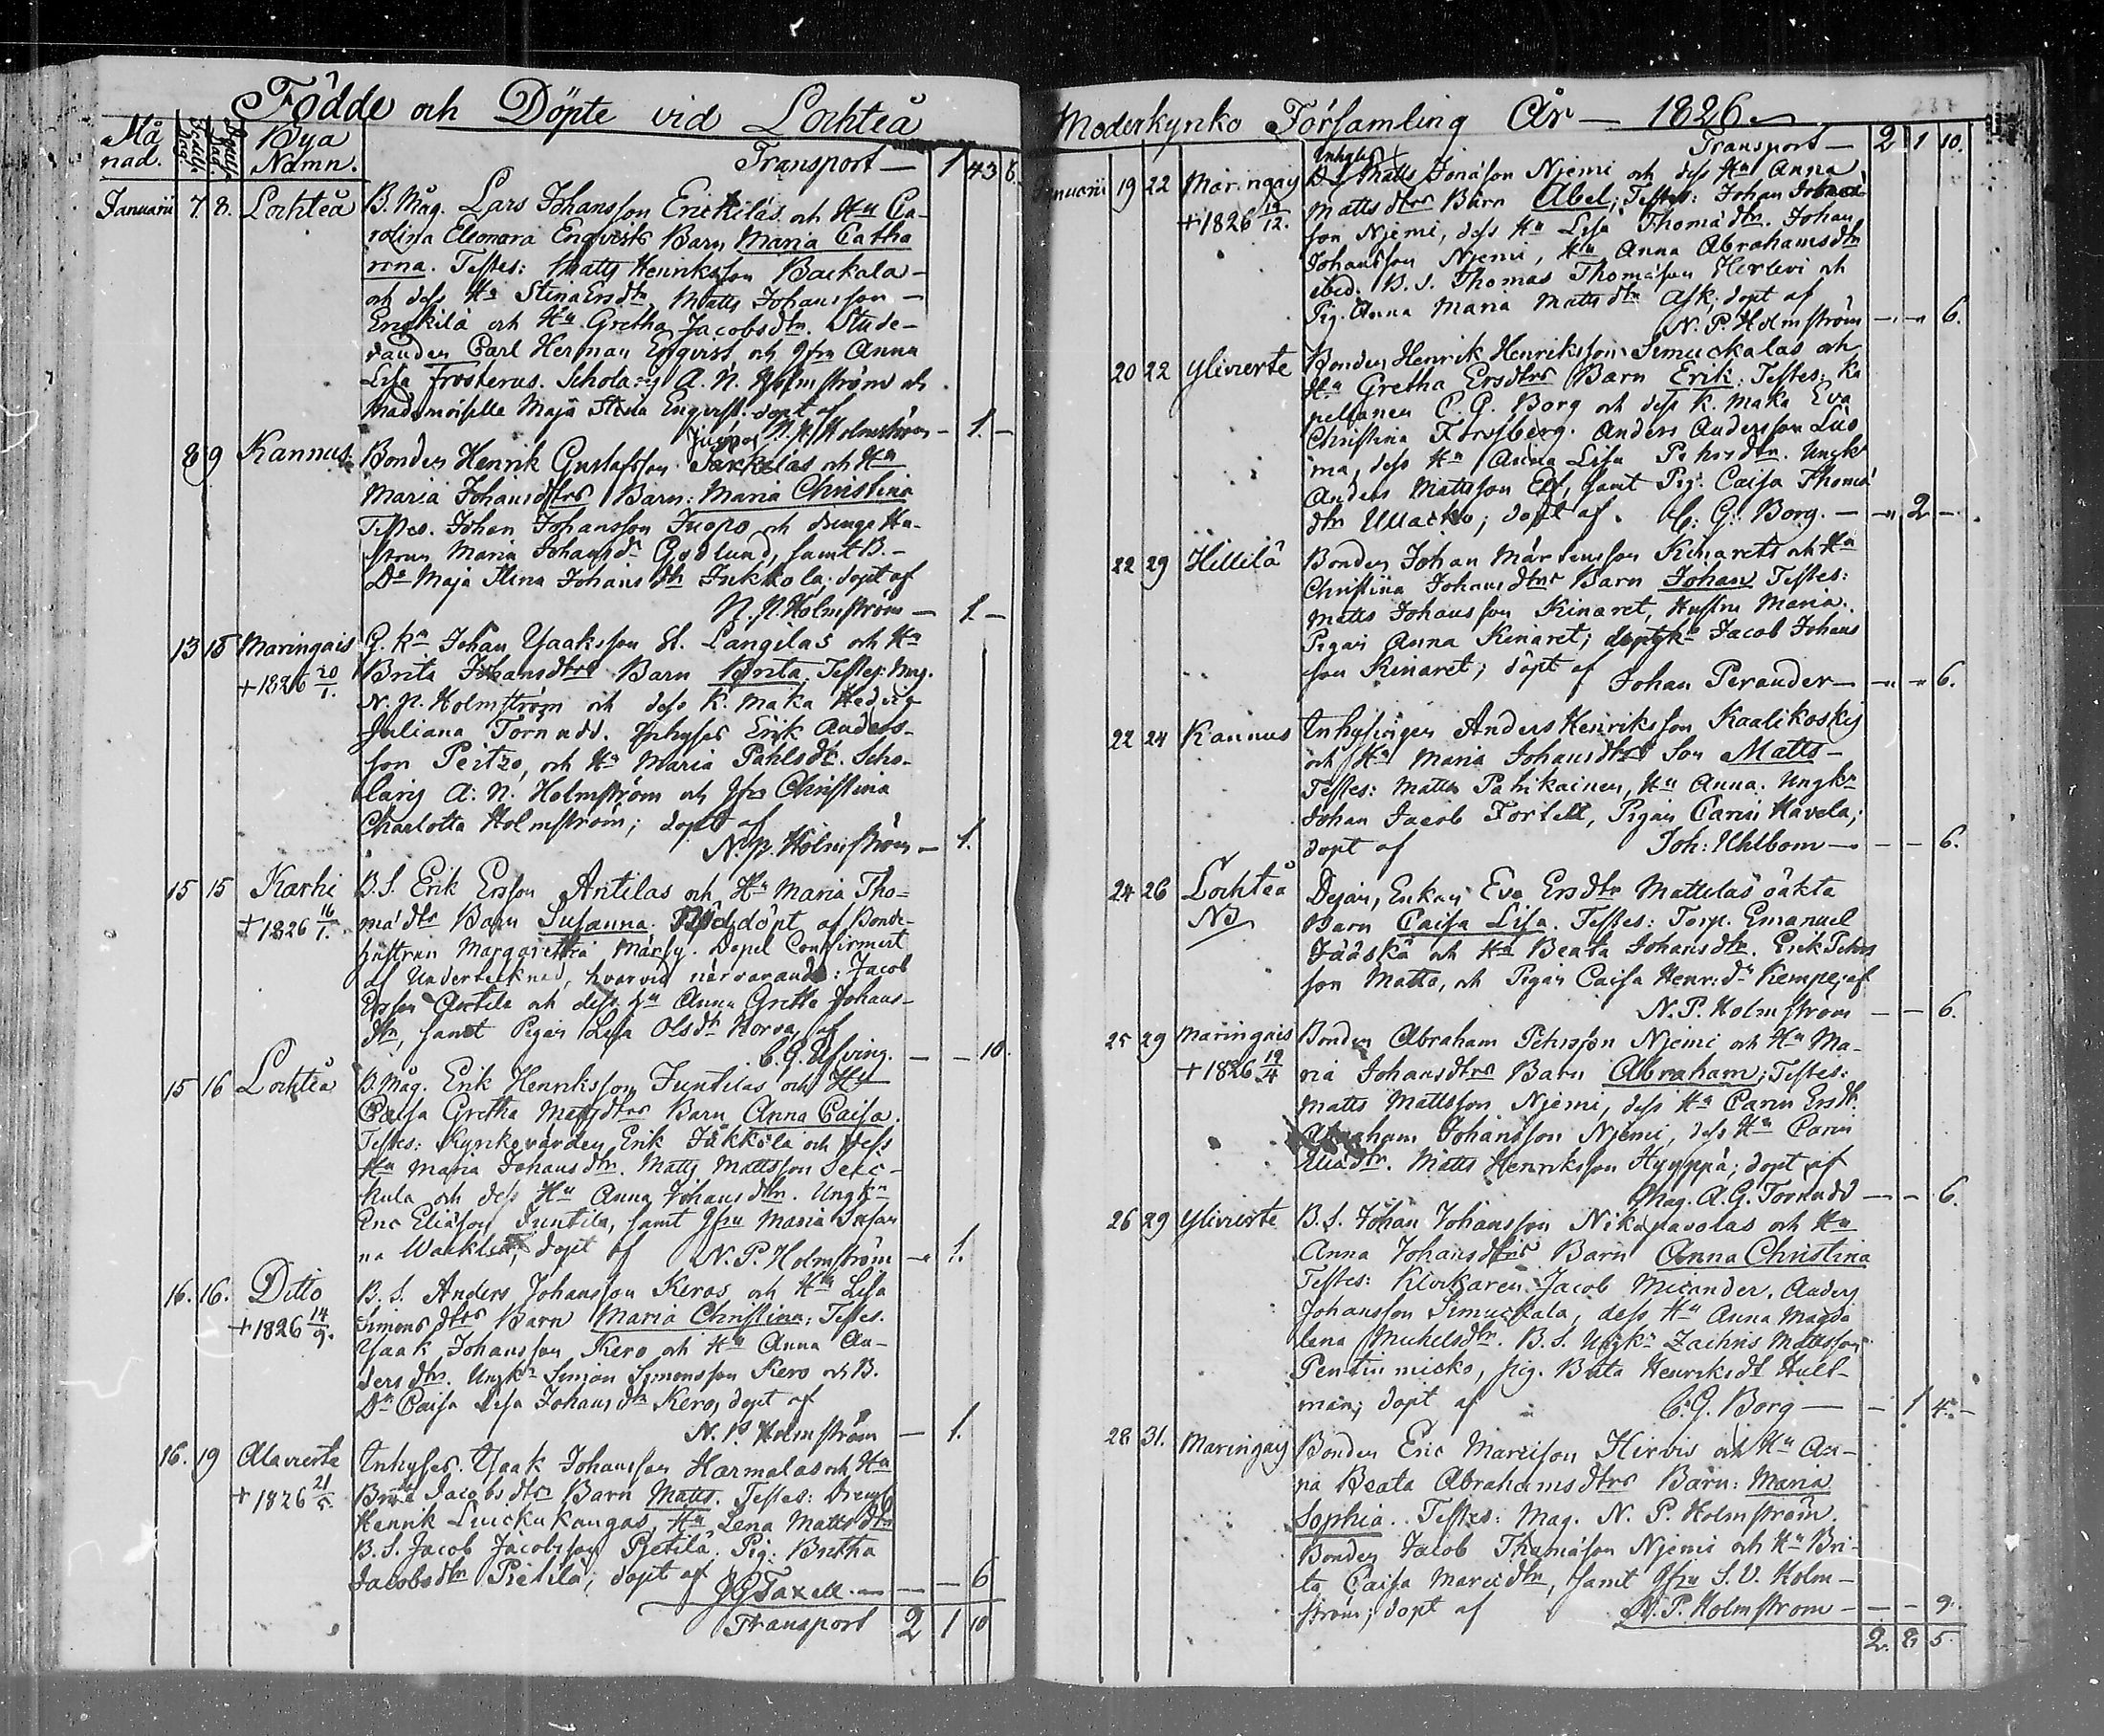 Födde och Döpte vid Lochteå
Må
nad.
Bya
Namn.
Transport — 1 43 8.
Januarii 7. 8. Lochteå B. Måg. Lars Johansson Erickilas och Hu Ca-
rolina Eleonora Enqvists Barn Maria Catha
rina. Testes: Matts Henriksson Backala —
och dess Hu Stina Ersdtr. Matts Johansson —
Erickilä och Hu Gretha Jacobsdtr. Stude-
randen Carl Herman Enqvist och Jfru Anna
Lisa Frosterus. Scholaris A. N. Holmström och
Mademoiselle Maja Stina Enqvist. döpt af
N. P. Holmström — 1. —
8 9 Kannus Bonden Henrik Gustafsson och Hu
Maria Johansdtrs Barn: Maria Christina
Testes. Johan Johansson Juopo och Hu-
strun Maria Johansdr Godlund, samt B. —
Dr Maja Stina Johans dtr Jukkola. döpt af
N. P. Holmström — 1. —
13 15 Maringais G. Kn Johan Ysaksson St. Langilas och Hu
+ 1826 20/1. Brita Johansdtrs Barn Brita. Testes: Mag.
N. P. Holmström och dess K. Maka Hedvig
Juliana Tornudd. Inhyses Erik Anders-
son Peitzo, och Hu Maria Pahlsdr. Scho-
laris A. N. Holmström och Jfru Christina
Charlotta Holmström; döpt af
N. P. Holmström — 1.
15 15 Karhi B. S. Erik Ersson Antilas och Hu Maria Tho-
+ 1826 16/1. mædtr Barn Susanna. Nöddöpt af Bonde-
hustrun Margaretha Märsy. Dopet Confirmert
af Undertecknad, hvarvid närvarande: Jacob
Ersson Antila och dess Hu Anna Gretha Johans-
dtr, samt Pigan Lisa Olsdr Korva, af
C. G. Ulfving. — — 10.
15 16 Lochteå B. Måg. Erik Henriksson Juntilas och Hu
Caisa Gretha Mattsdtrs Barn Anna Caisa.
Testes: Kyrkovärden Erik Jukkola och dess
Hu Maria Johansdtr. Matts Mattsson
kula och dess Hu Anna Johansdtr. Ungkn
Eric Eliæson Juntila, samt Jfru Maria Susan
na döpt af N. P. Holmström — 1.
16. 16. Ditto B. S. Anders Johansson Keros och Hu Lisa
+ 1826 14/9. Simonsdtrs Barn Maria Christina; Testes.
Ysaak Johansson Kero och Hu Anna An-
dersdtr. Ungkn Simon Simonsson Kero och B.
Dr Caisa Lisa Johansdtr Kero, döpt af
N. P. Holmström — 1.
16. 19 Alavierte Inhyses. Ysaak Johansson Harmalas och Hu
+ 1826 21/5. Brita Jacobsdtrs Barn Matts. Testes: Dreng
Henrik Luckukangas, Hu Lena Mattsdtr
B. S. Jacob Jacobsson Pietilä. Pig: Britha
Jacobsdtr Pietilä; döpt af JG Taxell. — — — 6
Transport 2 1 10
Moderkyrko Församling År — 1826.
Transport — 2 1 10.
Januarii 19 22 Maringais Inhyses Matts Jonæson Njemi och dess Hu Anna
+ 1826 19/12. Mattsdtrs Barn Abel; Testes: Johan
son Njemi, dess Hu Lisa Thomædtr. Johan
Johansson Njemi, Hu Anna Abrahamsdtr
ibid. B. S. Thomas Thomæson Herlevi och
Pig. Anna Maria Mattsdtr Ask. döpt af
N. P. Holmström — " — " 6.
20 22 Ylivierte Bonden Henrik Henriksson Simuckalas och
Hu Gretha Ersdtrs Barn Erik: Testes: Ka
pellanen C. G. Borg och dess K. Maka Eva
Christina Forsberg. Anders Andersson Luo
ma, dess Hu Anna Lisa Pehrsdtr. Ungk
Anders Mattsson Elf, samt Pig. Caisa Thomæ
dtr Ullacko; döpt af C: G: Borg. — " 2 —
22 29 Hillilä Bonden Johan Mårtensson Kinarets och Hu
Christina Johansdtrs Barn Johan Testes:
Matts Johansson Kinaret, Hustru Maria.
Pigan Anna Kinaret; Jacob Johans
son Kinaret; döpt af Johan Perander — " — " 6.
22 24 Kannus Inhysingen Anders Henriksson Kaalikoskij
och Hu Maria Johansdtrs Son Matts —
Testes: Matts Patrikainen, Hu Anna. Ungkn
Johan Jacob Fortell, Pigan Carin Havela;
döpt af Joh: Uhlbom — — — 6.
24 26 Lochteå Dejan, Enkan Eva Ersdtr Mattilas oäkta
No Barn Caisa Lisa. Testes: Torp. Emanuel
Jääskä och Hu Beata Johansdtr. Erik Pehrs
son Matto, och Pigan Caisa Henr: dr Kempe; af
N. P. Holmström — — 6.
25 29 Maringais Bonden Abraham Pehrsson Njemi och Hu Ma-
+ 1826 19/4 ria Johansdtrs Barn Abraham; Testes:
Matts Mattsson Njemi, dess Hu Carin Ersdr.
Abraham Johansson Njemi, dess Hu Carin
Eliædtr. Matts Henriksson Hyyppä; döpt af
Mag. A. G. Tornudd — — 6.
26 29 Ylivierte B. S. Johan Johansson Nikupavolas och Hu
Anna Johansdtrs Barn Anna Christina
Testes: Klockaren Jacob Micander. Anders
Johansson Simuckala, dess Hu Anna Magda
lena Michelsdtr. B. S. Ungkn Zachris Mattsson
Pentinmicko, pig. Brita Henriksdr Hult-
man; döpt af C. G. Borg — — 1 4. —
28 31. Maringais Bonden Eric Marcison Hirvis och Hu An-
na Beata Abrahamsdtrs Barn: Maria
Sophia. Testes: Mag. N. P. Holmström.
Bonden Jacob Thomæson Njemi och Hu Bri-
ta Caisa Marcidtr, samt Jfru S. U. Holm-
ström; döpt af N. P. Holmström — — — 9.
2. 8. 5.